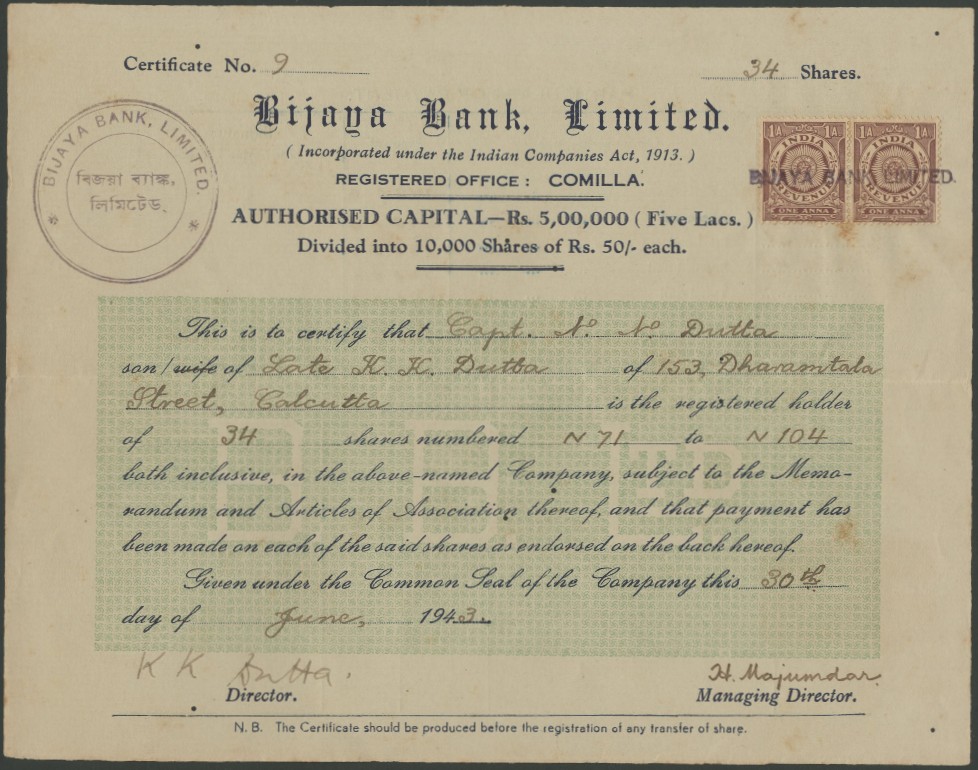 Certificate No. 9
34 Shares.
Bijaya Bank, Limited.
( Incorporated under the Indian Companies Act, 1913. )
REGISTERED OFFICE : COMILLA.
AUTHORISED CAPITAL—Rs. 5,00,000 ( Five Lacs. )
Divided into 10,000 Shares of Rs. 50/- each.
BIJAYA BANK, LIMITED.
বিজয়া ব্যাঙ্ক,
লিমিটেড.
1A 1A 1A 1A
INDIA INDIA
BIJAYA BANK LIMITED.
REVENUE REVENUE
ONE ANNA ONE ANNA
This is to certify that Capt. No No Dutta
son/wife of Late K. K. Dutta of 153, Dharamtala
Street, Calcutta is the registered holder
of 34 shares numbered N 71 to N 104
both inclusive, in the above-named Company, subject to the Memo-
randum and Articles of Association thereof, and that payment has
been made on each of the said shares as endorsed on the back hereof.
Given under the Common Seal of the Company this 30th
day of June, 1943.
K K Dutta.
Director.
H. Majumdar.
Managing Director.
N. B. The Certificate should be produced before the registration of any transfer of share.